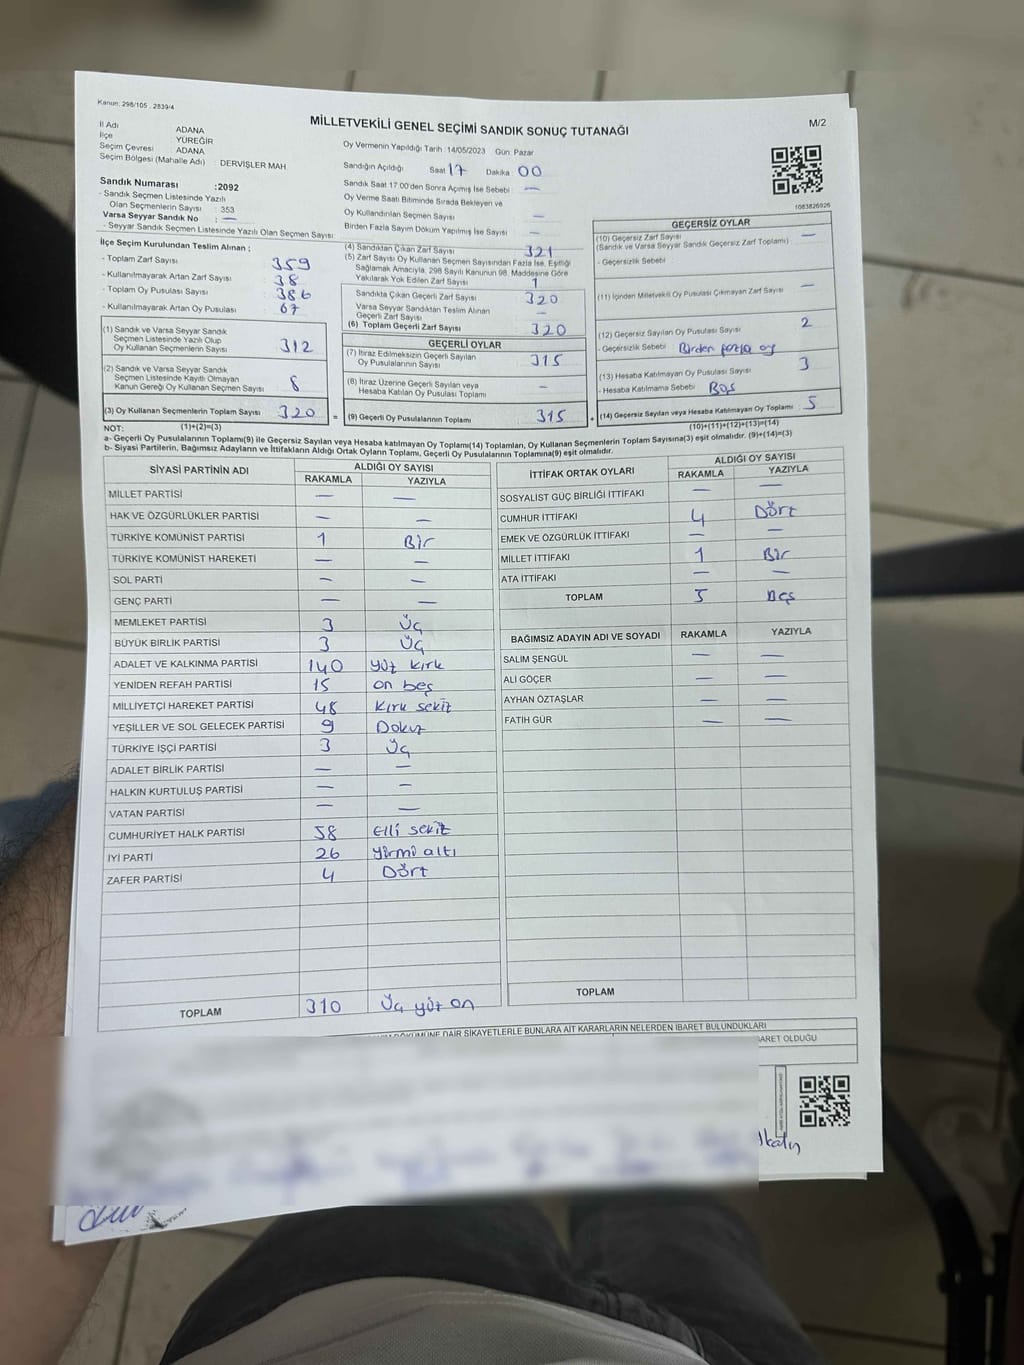 Kanun: 298/105 . 2839/4
MİLLETVEKİLİ GENEL SEÇİMİ SANDIK SONUÇ TUTANAĞI
M/2
İl Adı ADANA
İlçe : YÜREĞİR
Seçim Çevresi : ADANA
Seçim Bölgesi (Mahalle Adı) : DERVİŞLER MAH
Sandık Numarası :2092
- Sandık Seçmen Listesinde Yazılı
Olan Seçmenlerin Sayısı : 353
Varsa Seyyar Sandık No : —
- Seyyar Sandık Seçmen Listesinde Yazılı Olan Seçmen Sayısı
İlçe Seçim Kurulundan Teslim Alınan ;
- Toplam Zarf Sayısı 359
- Kullanılmayarak Artan Zarf Sayısı 38
- Toplam Oy Pusulası Sayısı 386
- Kullanılmayarak Artan Oy Pusulası 67
(1) Sandık ve Varsa Seyyar Sandık
Seçmen Listesinde Yazılı Olup
Oy Kullanan Seçmenlerin Sayısı 312
(2) Sandık ve Varsa Seyyar Sandık
Seçmen Listesinde Kayıtlı Olmayan
Kanun Gereği Oy Kullanan Seçmen Sayısı 8
(3) Oy Kullanan Seçmenlerin Toplam Sayısı 320 =
Oy Vermenin Yapıldığı Tarih : 14/05/2023 Gün: Pazar
Sandığın Açıldığı Saat 17 Dakika 00
Sandık Saat 17:00'den Sonra Açılmış İse Sebebi : —
Oy Verme Saati Bitiminde Sırada Bekleyen ve
Oy Kullandırılan Seçmen Sayısı —
Birden Fazla Sayım Döküm Yapılmış İse Sayısı —
(4) Sandıktan Çıkan Zarf Sayısı 321
(5) Zarf Sayısı Oy Kullanan Seçmen Sayısından Fazla İse, Eşitliği
Sağlamak Amacıyla, 298 Sayılı Kanunun 98. Maddesine Göre
Yakılarak Yok Edilen Zarf Sayısı 1
Sandıkta Çıkan Geçerli Zarf Sayısı 320
Varsa Seyyar Sandıktan Teslim Alınan
Geçerli Zarf Sayısı —
(6) Toplam Geçerli Zarf Sayısı 320
GEÇERLİ OYLAR
(7) İtiraz Edilmeksizin Geçerli Sayılan
Oy Pusulalarının Sayısı 315
(8) İtiraz Üzerine Geçerli Sayılan veya
Hesaba Katılan Oy Pusulası Toplamı —
(9) Geçerli Oy Pusulalarının Toplamı 315 +
1083826926
GEÇERSİZ OYLAR
(10) Geçersiz Zarf Sayısı —
(Sandık ve Varsa Seyyar Sandık Geçersiz Zarf Toplamı)
- Geçersizlik Sebebi :
(11) İçinden Milletvekili Oy Pusulası Çıkmayan Zarf Sayısı —
(12) Geçersiz Sayılan Oy Pusulası Sayısı 2
- Geçersizlik Sebebi Birden fazla oy
(13) Hesaba Katılmayan Oy Pusulası Sayısı 3
- Hesaba Katılmama Sebebi Boş
(14) Geçersiz Sayılan veya Hesaba Katılmayan Oy Toplamı 5
NOT: (1)+(2)=(3) (10)+(11)+(12)+(13)=(14)
a- Geçerli Oy Pusulalarının Toplamı(9) ile Geçersiz Sayılan veya Hesaba katılmayan Oy Toplamı(14) Toplamları, Oy Kullanan Seçmenlerin Toplam Sayısına(3) eşit olmalıdır. (9)+(14)=(3)
b- Siyasi Partilerin, Bağımsız Adayların ve İttifakların Aldığı Ortak Oyların Toplamı, Geçerli Oy Pusulalarının Toplamına(9) eşit olmalıdır.
SİYASİ PARTİNİN ADI ALDIĞI OY SAYISI
RAKAMLA YAZIYLA
MİLLET PARTİSİ — —
HAK VE ÖZGÜRLÜKLER PARTİSİ — —
TÜRKİYE KOMÜNİST PARTİSİ 1 Bir
TÜRKİYE KOMÜNİST HAREKETİ — —
SOL PARTİ — —
GENÇ PARTİ — —
MEMLEKET PARTİSİ 3 Üç
BÜYÜK BİRLİK PARTİSİ 3 Üç
ADALET VE KALKINMA PARTİSİ 140 yüz kırk
YENİDEN REFAH PARTİSİ 15 on beş
MİLLİYETÇİ HAREKET PARTİSİ 48 Kırk sekiz
YEŞİLLER VE SOL GELECEK PARTİSİ 9 Dokuz
TÜRKİYE İŞÇİ PARTİSİ 3 Üç
ADALET BİRLİK PARTİSİ — —
HALKIN KURTULUŞ PARTİSİ — —
VATAN PARTİSİ — —
CUMHURİYET HALK PARTİSİ 58 Elli sekiz
İYİ PARTİ 26 yirmi altı
ZAFER PARTİSİ 4 Dört
TOPLAM 310 Üç yüz on
İTTİFAK ORTAK OYLARI ALDIĞI OY SAYISI
RAKAMLA YAZIYLA
SOSYALİST GÜÇ BİRLİĞİ İTTİFAKI — —
CUMHUR İTTİFAKI 4 Dört
EMEK VE ÖZGÜRLÜK İTTİFAKI — —
MİLLET İTTİFAKI 1 Bir
ATA İTTİFAKI — —
TOPLAM 5 Beş
BAĞIMSIZ ADAYIN ADI VE SOYADI RAKAMLA YAZIYLA
SALİM ŞENGÜL — —
ALİ GÖÇER — —
AYHAN ÖZTAŞLAR — —
FATİH GÜR — —
TOPLAM
DÖKÜMÜNE DAİR ŞİKAYETLERLE BUNLARA AİT KARARLARIN NELERDEN İBARET BULUNDUKLARI
BARET OLDUĞU